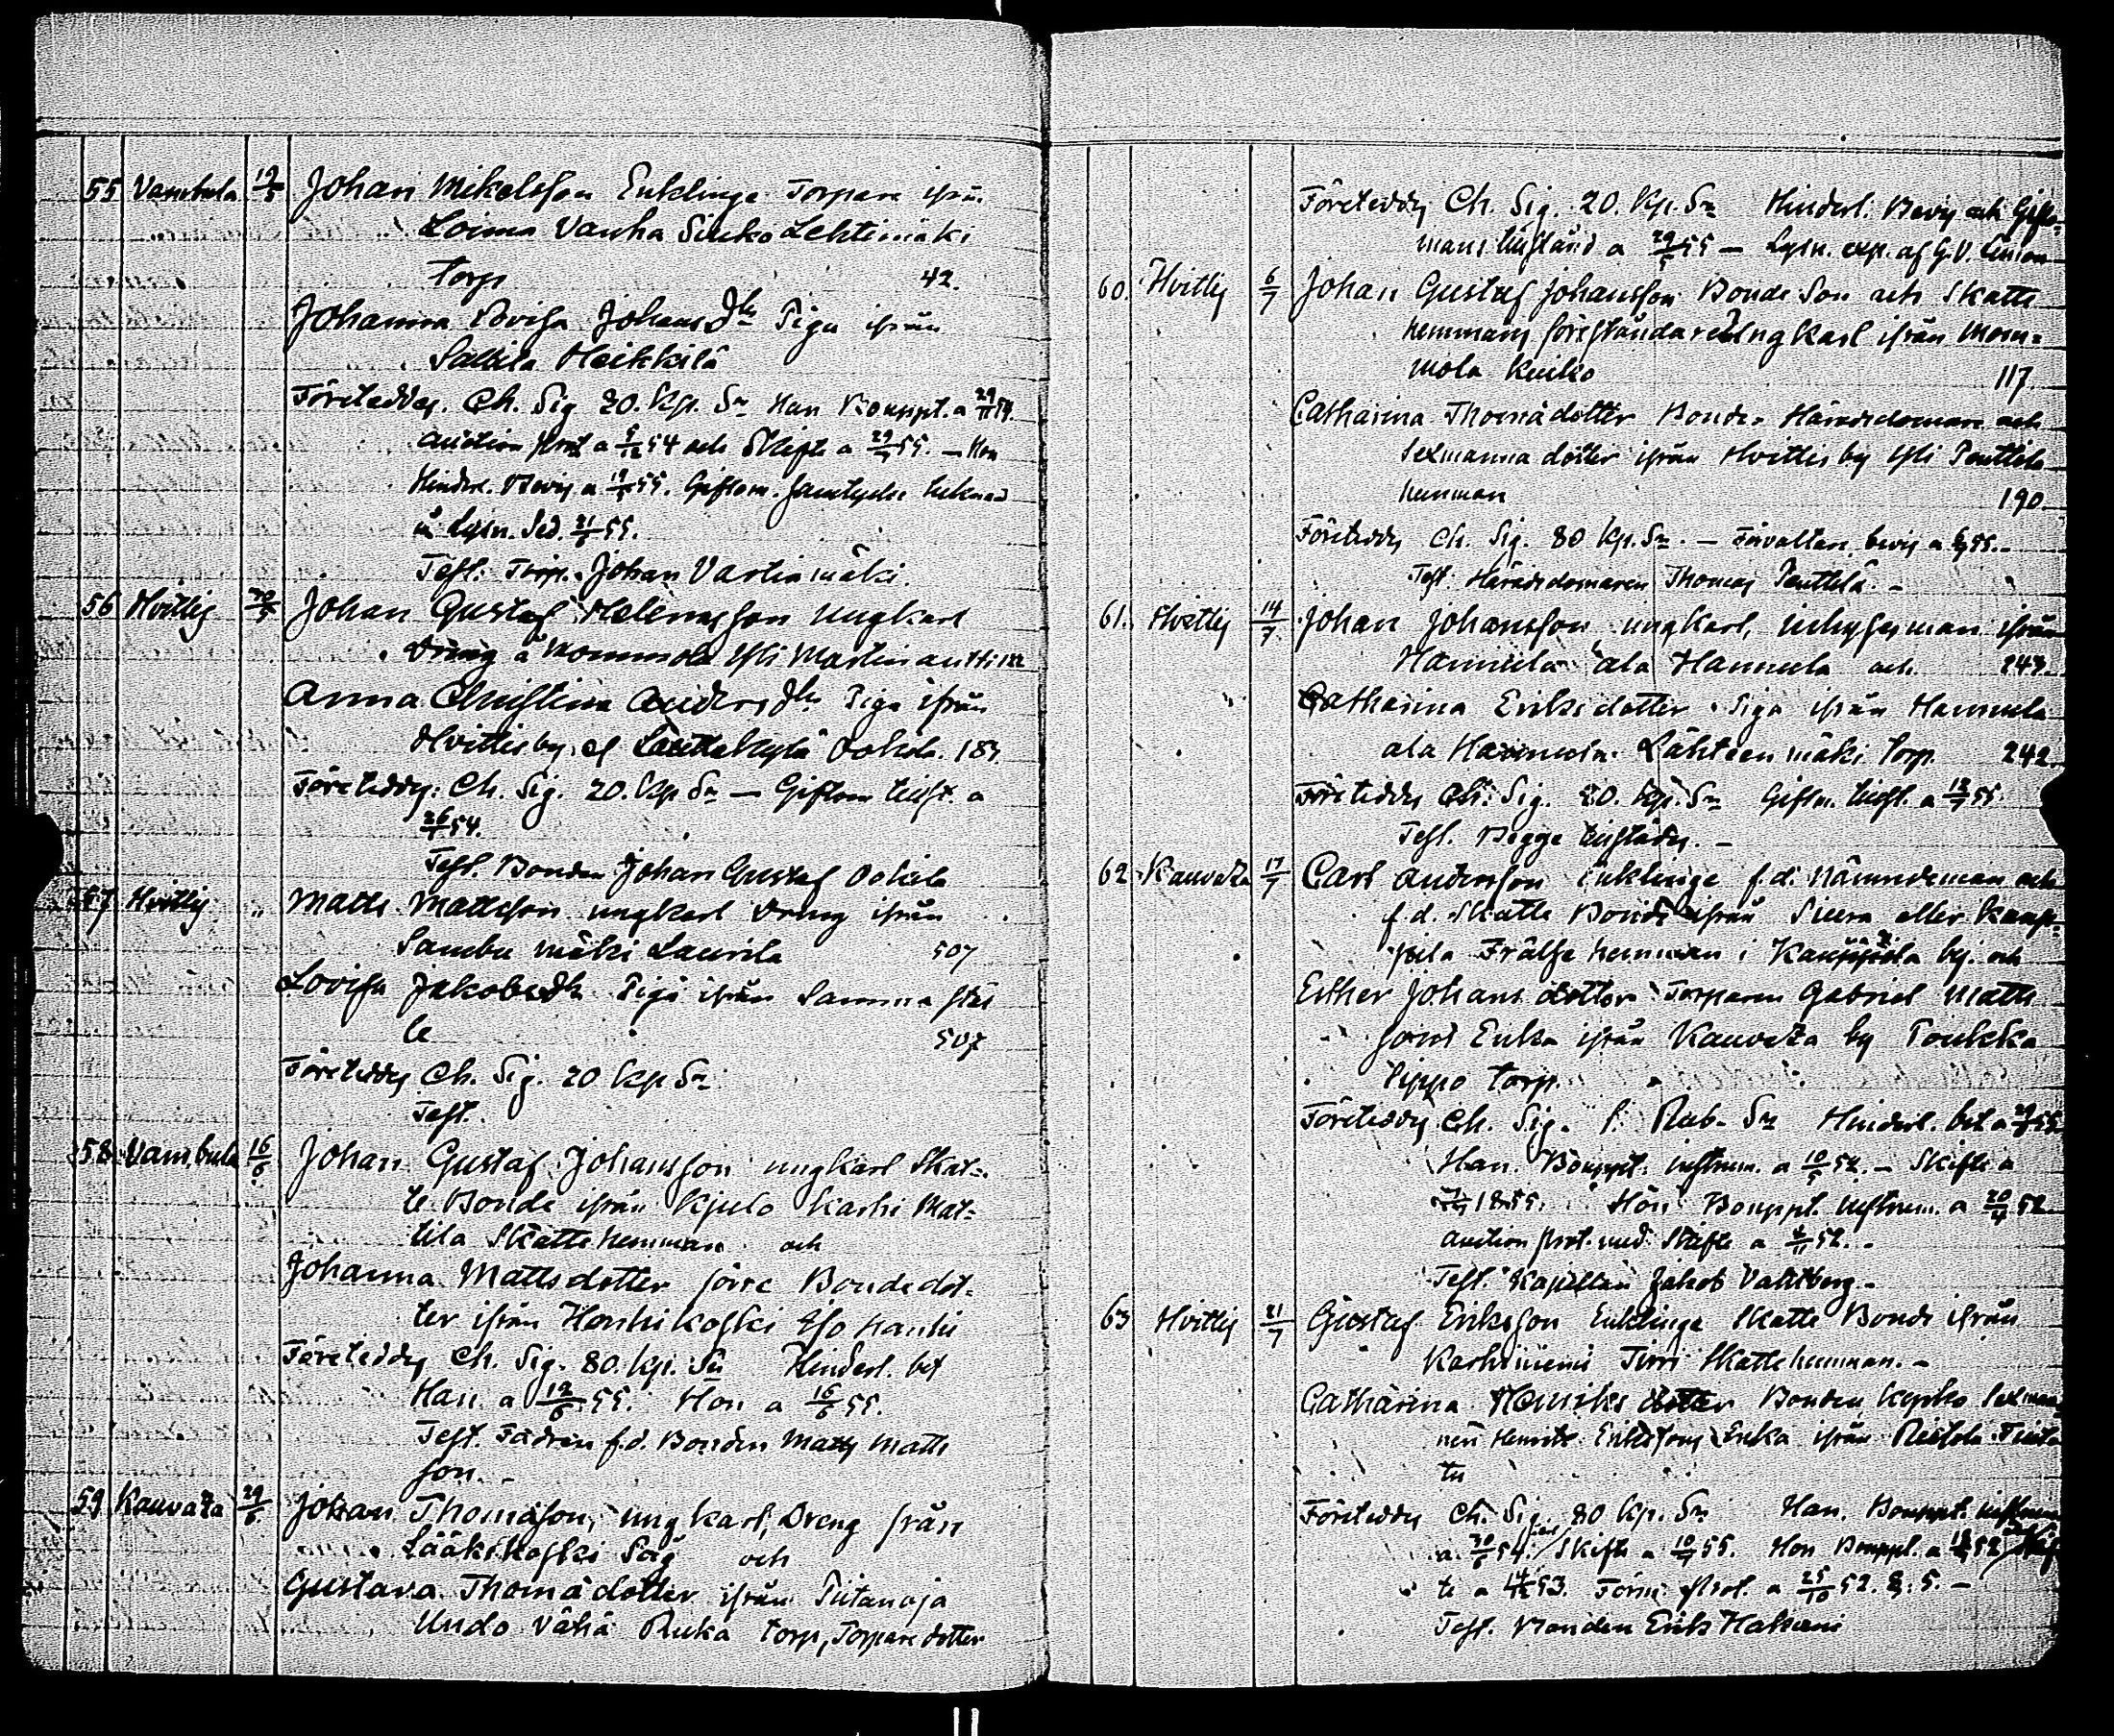 55 Vambula 19/5 Johan Mikelsson Enklinge Torpare ifrån
Loima Vanha Sinko Lehtimäki
Torp 42.
Johanna Lovisa Johans dtr Piga ifrån
Sallila Heikkilä
Företeddes. Ch. Sig 20. Kp. Sr Han Bouppt. a 29/11 54.
auction prot a 5/12 54 och Skifte a 29/1 55. — Hon
Hinderl. Bevis a 19/5 55. Giftom. samtycke teknad
å Lysn. Sed. 21/5 55.
Test: Torp. Johan Vartiamäki.
56 Hvittis 20/5 Johan Gustaf Helenasson ungkarl
Dräng å Mommola Yli Martin antti 122
Anna Christina Anders dtr Piga ifrån
Hvittisby, af Lauttakylä Ookila. 183.
Företeddes: Ch. Sig. 20. Kp Sr — Giftom tillst. a
26/5 54.
Test. Bonden Johan Gustaf Ookila
57 Hvittis „ Matts Mattsson ungkarl Dräng ifrån
Sambu mäki Laurila 507
Lovisa Jakobs dtr Piga ifrån Samma stäl
le 507
Företeddes Ch. Sig. 20 Kp Sr
Test.
58. Vambula 16/6 Johan Gustaf Johansson ungkarl Skat-
te Bonde ifrån Kjulo Karhi Mat-
tila Skatte hemman och
Johanna Mattsdotter förre Bondedot-
ter ifrån Honhikoski Iso Hanhi
Företeddes Ch. Sig. 80. Kp. Sr Hinderl. bet
Han. a 12/6 55. Hon a 16/6 55.
Test. Fadren f.d. Bonden Matts Matts
son. -
59 Kauvatza 29/6 Johan Thomasson, ungkarl, Dreng från
Lääkikoski Såg och
Gustava Thomädotter ifrån Piitanoja
Undo Vähä Ruka torp, Torpare dotter
Företeddes Ch. Sig. 20. Kp. Sr Hinderl. Bevis och Gifto-
mans tillstånd a 29/5 55 — Lysn. exp. af G.V.
60. Hvittis 6/7 Johan Gustaf Johansson Bonde Son och Skatte
hemmans föreståndare Ungkarl ifrån Mom-
mola Kuiko 117.
Catharina Thomädotter Bonde- Häradsdomare och
Sexmanna dotter ifrån Hvittis by Yli Penttilä
hemman 190
Företeddes Ch. Sig. 80 Kp. Sr. — Förvaltare. bevis a 55. -
Test. Häradsdomaren Thomas Penttilä. -
61. Hvittis 14/7 Johan Johansson ungkarl, inhysesman ifrån
Hannula ala Hannula och 243.
Catharina Eriksdotter Piga ifrån Hannula
ala Hannula Lähteen mäki Torp. 242.
Företeddes Ch. Sig. 20. Kp. Sr Giftm. tillst. a 12/7 55.
Test. Begge tillstädes. -
62 Kauvatza 17/7 Carl Andersson Enklinge f.d. Nämndeman och
f.d. Skatte Bonde ifrån Siura eller Kaup-
pila Frälse hemman i Kauppila by. och
Esther Johans dotter Torparen Gabriel Matts
sons Enka ifrån Kauvatza by Poukka
Pippo torp.
Företeddes Ch. Sig. 1. Rub- Sr Hinderl. bet a 29/6 55
Han. Bouppt. instrum. a 10/5 52. — Skifte a
1855. Hon Bouppt. instrum. a 20/4 52
auction prot. med Skifte a 52. -
Test. Kapellan Jakob Valtberg -
63 Hvittis 21/7 Gustaf Eriksson Enklinge Skatte Bonde ifrån
Karhiniemi Jirri Skattehemman. -
Catharina Henriks dotter Bonden Kyrko Sexman
nen Henrik Erikssons Enka ifrån Ristola
Företeddes Ch. Sig. 80 Kp. Sr Han. Bouppt. instrum
a. 54. Skifte a 55. Hon Bouppt. a 52 Skif
te a 53. Förm. Prot. a 25/10 52. §. 5. —
Test. Bonden Erik Hakuni